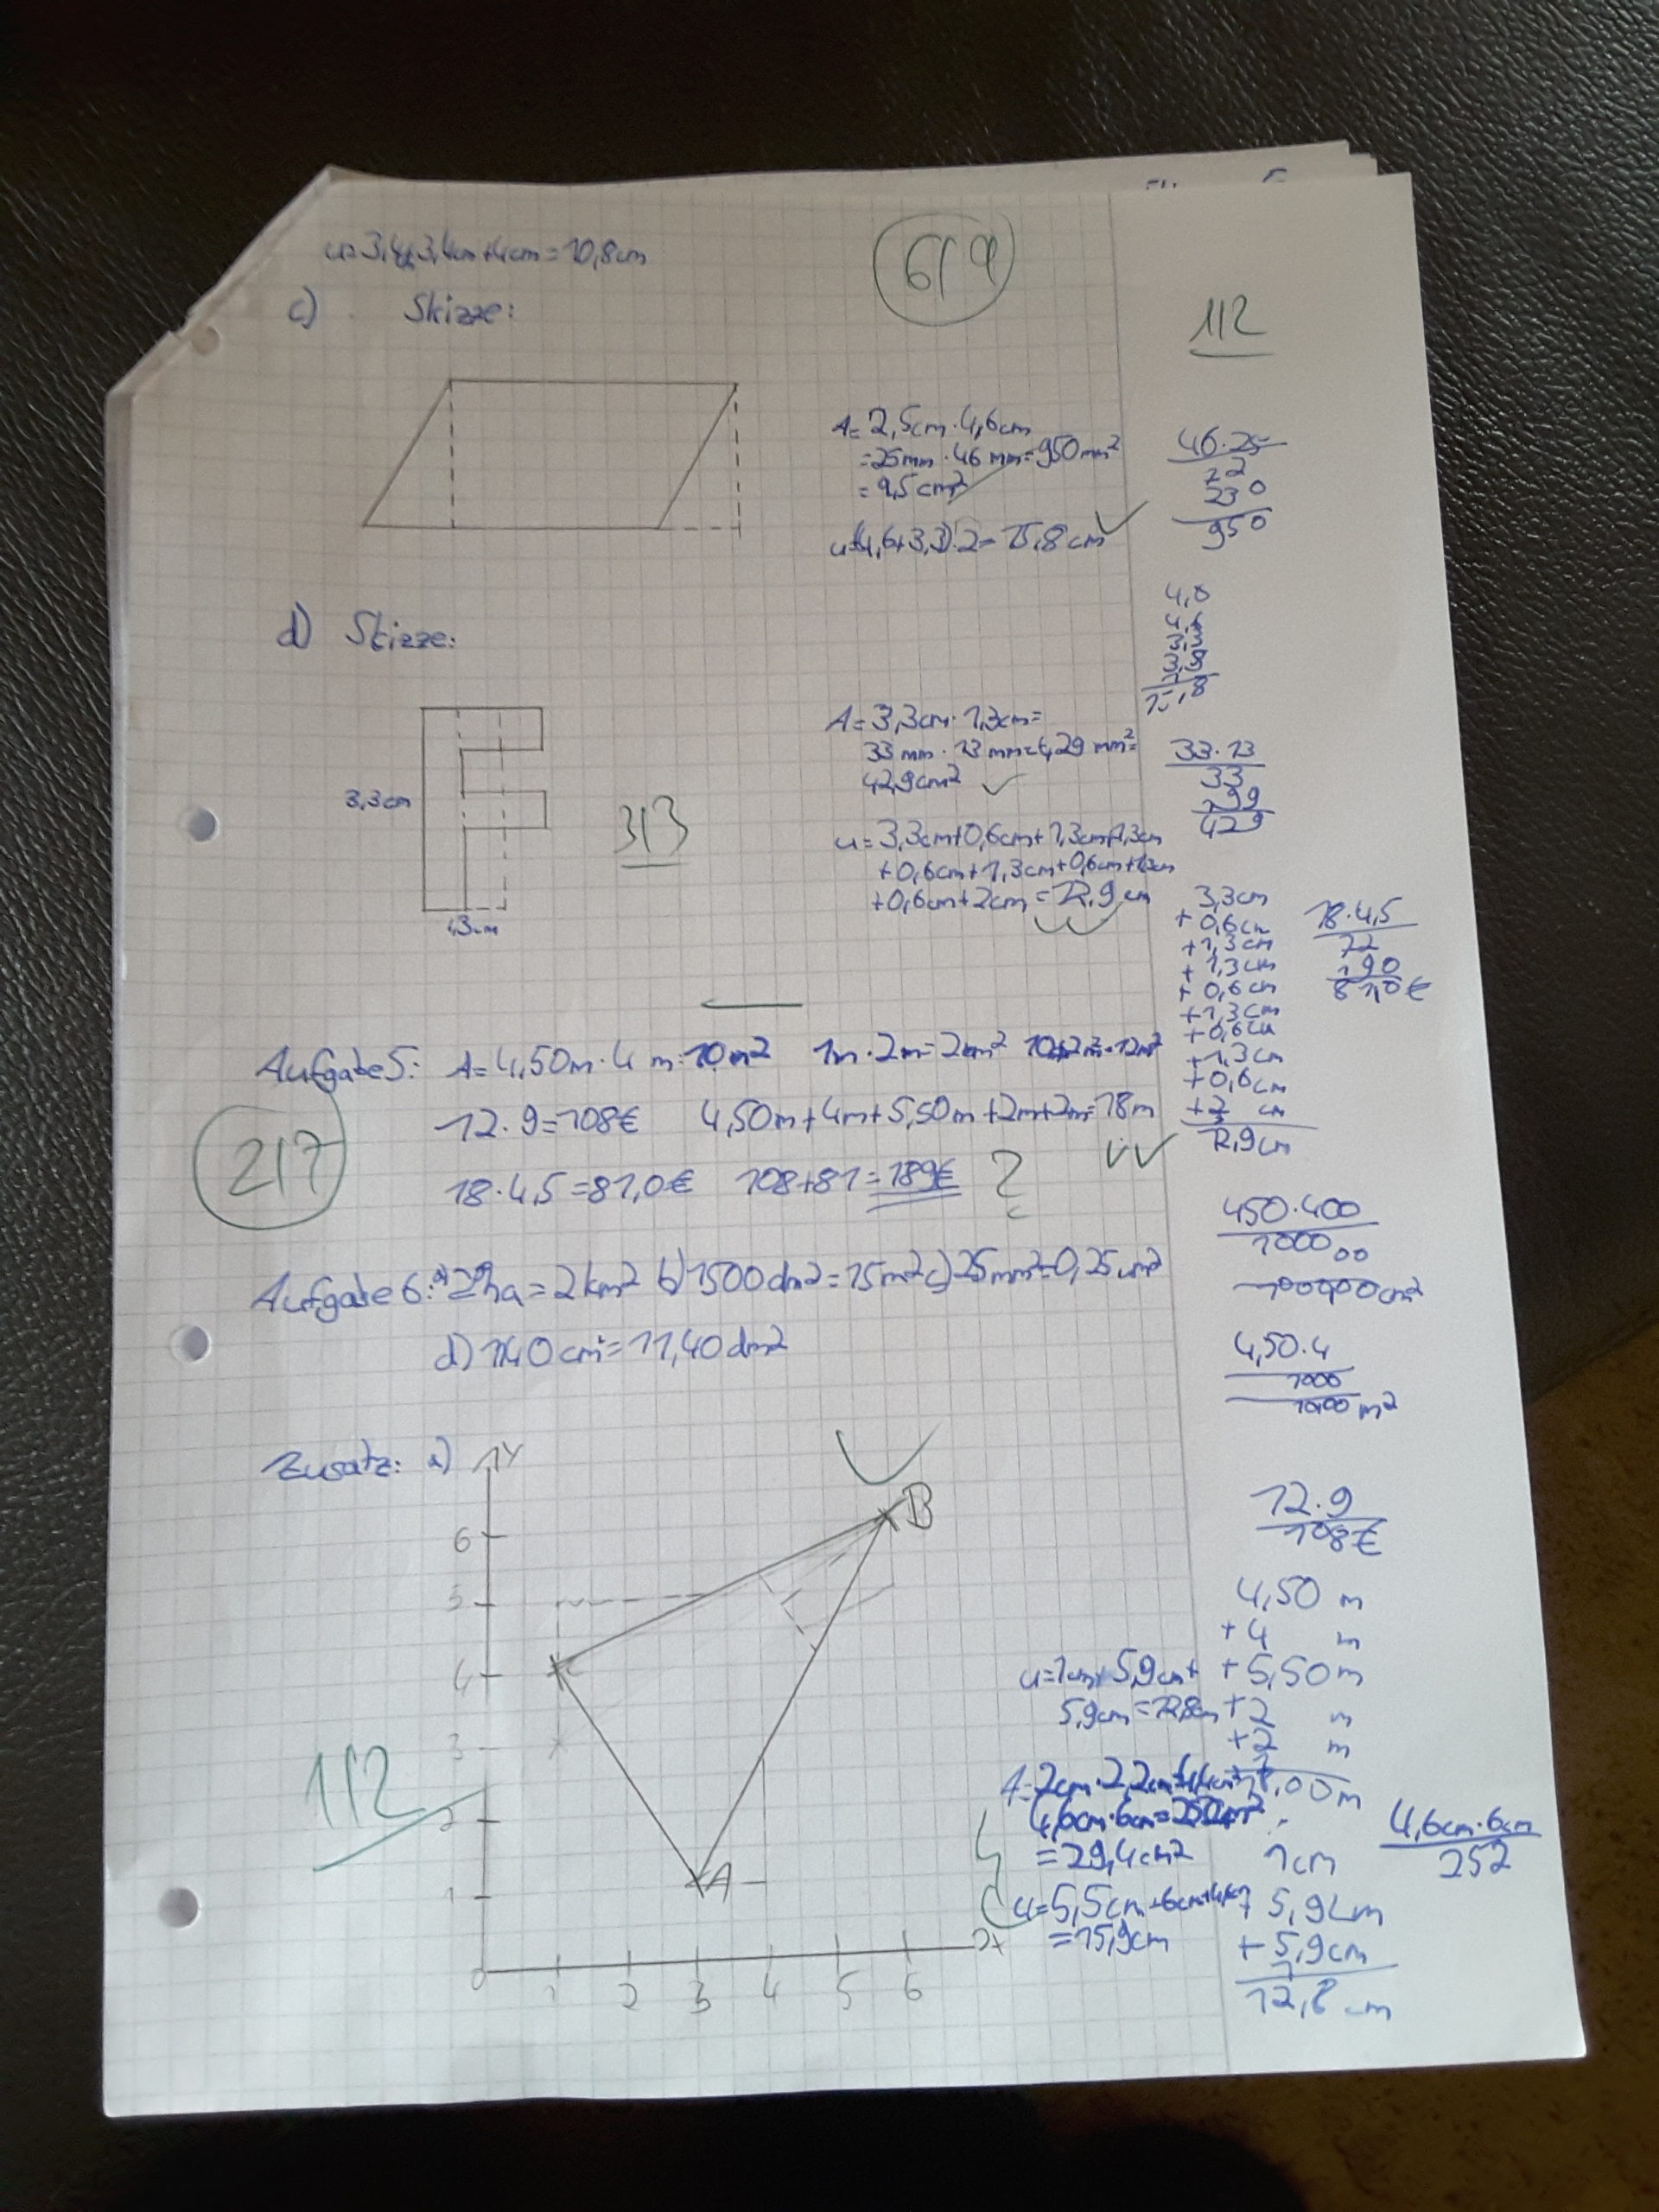 u=3,4+3,4cm+4cm=10,8cm
6/9
c) Skizze:
1/2
A=2,5cm·4,6cm
=25mm·46mm=950mm²
=9,5cm²
u=(4,6+3,3)·2=15,8cm
46·25
230
950
d) Skizze:
3,3cm
1,3cm
3/3
A=3,3cm·1,3cm=
33mm·13mm=429mm²=
42,9cm²
u=3,3cm+0,6cm+1,3cm+1,3cm
+0,6cm+1,3cm+0,6cm+1,3cm
+0,6cm+2cm=12,9cm
33·13
33
99
429
3,3cm
+0,6cm
+1,3cm
+1,3cm
+0,6cm
+1,3cm
+0,6cm
+1,3cm
+0,6cm
+2 cm
12,9cm
18·4,5
72
90
81,0€
Aufgabe 5: A=4,50m·4m=10m² 1m·2m=2m²
12·9=108€ 4,50m+4m+5,50m+2m+2m=18m
2/7
18·4,5=81,0€ 108+81=189€ ?
450·400
100000
100000cm²
Aufgabe 6: a) ha=2km² b) 1500dm²=15m² c) 25mm²=0,25cm²
d) 1140cm²=11,40dm²
4,50·4
1000
10,00m²
12·9
108€
Zusatz: a)
y
B
6
5
4
3
2
1
0
1 2 3 4 5 6
x
A
C
1/2
4,50 m
+4 m
+5,50 m
+2 m
+2 m
18,00 m
u=1cm+5,9cm+
5,9cm=12,8cm
4,6cm·6cm=
=29,4cm²
4,6cm·6cm
252
u=5,5cm+6cm+4,4cm
=15,9cm
1cm
+5,9cm
+5,9cm
12,8cm